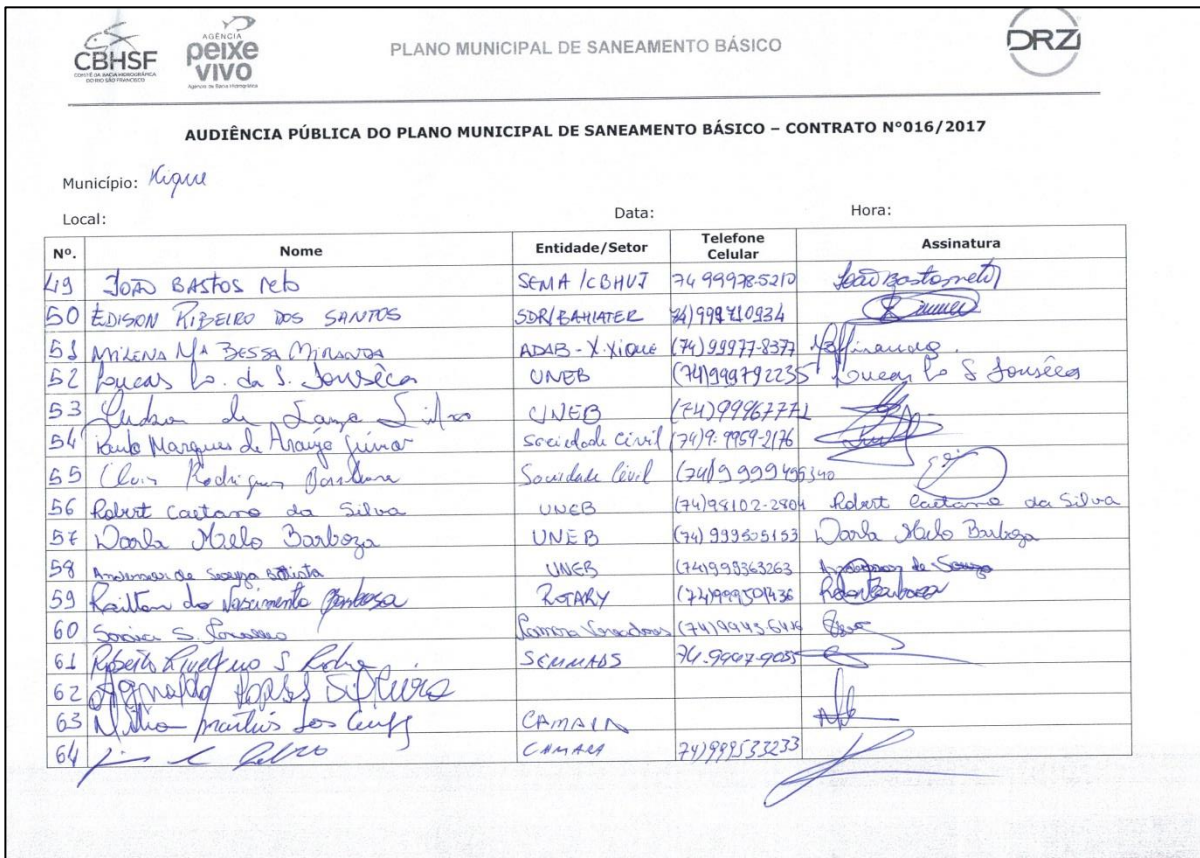 CBHSF
COMITÊ DA BACIA HIDROGRÁFICA
DO RIO SÃO FRANCISCO
AGÊNCIA
peixe
vivo
Agência de Bacia Hidrográfica
PLANO MUNICIPAL DE SANEAMENTO BÁSICO
DRZ
AUDIÊNCIA PÚBLICA DO PLANO MUNICIPAL DE SANEAMENTO BÁSICO – CONTRATO N°016/2017
Município: Xique
Local: Data: Hora:
Nº. Nome Entidade/Setor Telefone Celular Assinatura
49 JOÃO BASTOS Neto SEMA/CBHVJ 74 999785210 João Bastos neto
50 EDISON RIBEIRO DOS SANTOS SDR/BAHIATER 74)999710934
51 MILENA Mª BESSA MIRANDA ADAB - X.XIQUE (74) 99977-8377
52 Lucas da S. Fonsêca UNEB (74)999792235 Lucas S Fonsêca
53 de Silva UNEB (74)99967771
54 Paulo Marques de Araujo Júnior Sociedade Civil (74)9.9959-2176
55 Rodrigues Sociedade Civil (74)9 9999495340
56 Robert Caetano da Silva UNEB (74)98102-2804 Robert Caetano da Silva
57 Darla Melo Barboza UNEB (74) 999505153 Darla Melo Barboza
58 de Souza Batista UNEB (74)999363263 de Souza
59 Railton do Nascimento Barbosa ROTARY (74)999501436
60 Sonia S.
61 Roberto S SEMMADS 74.9997-9055
62 Agnaldo Lopes
63 Martins dos CAMARA
64 CAMARA 74)999533233